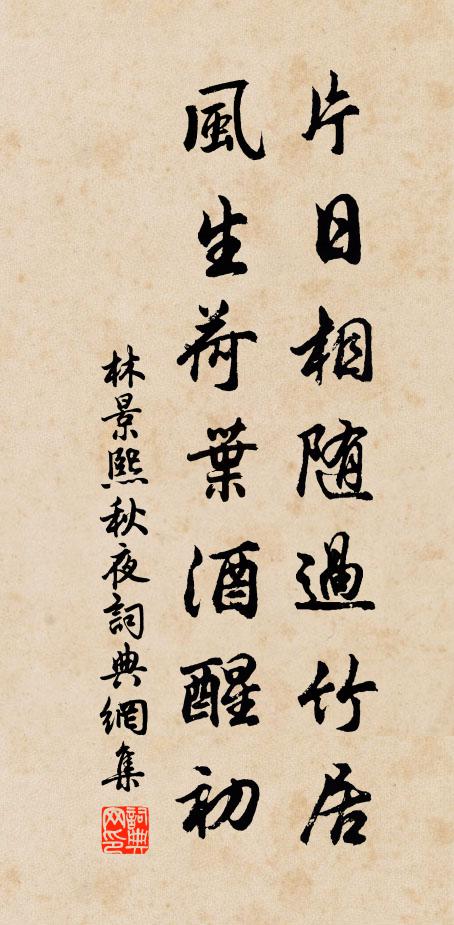 片日相随過竹居
風生荷葉酒醒初
林景熙秋夜詞典網集
詞典网印